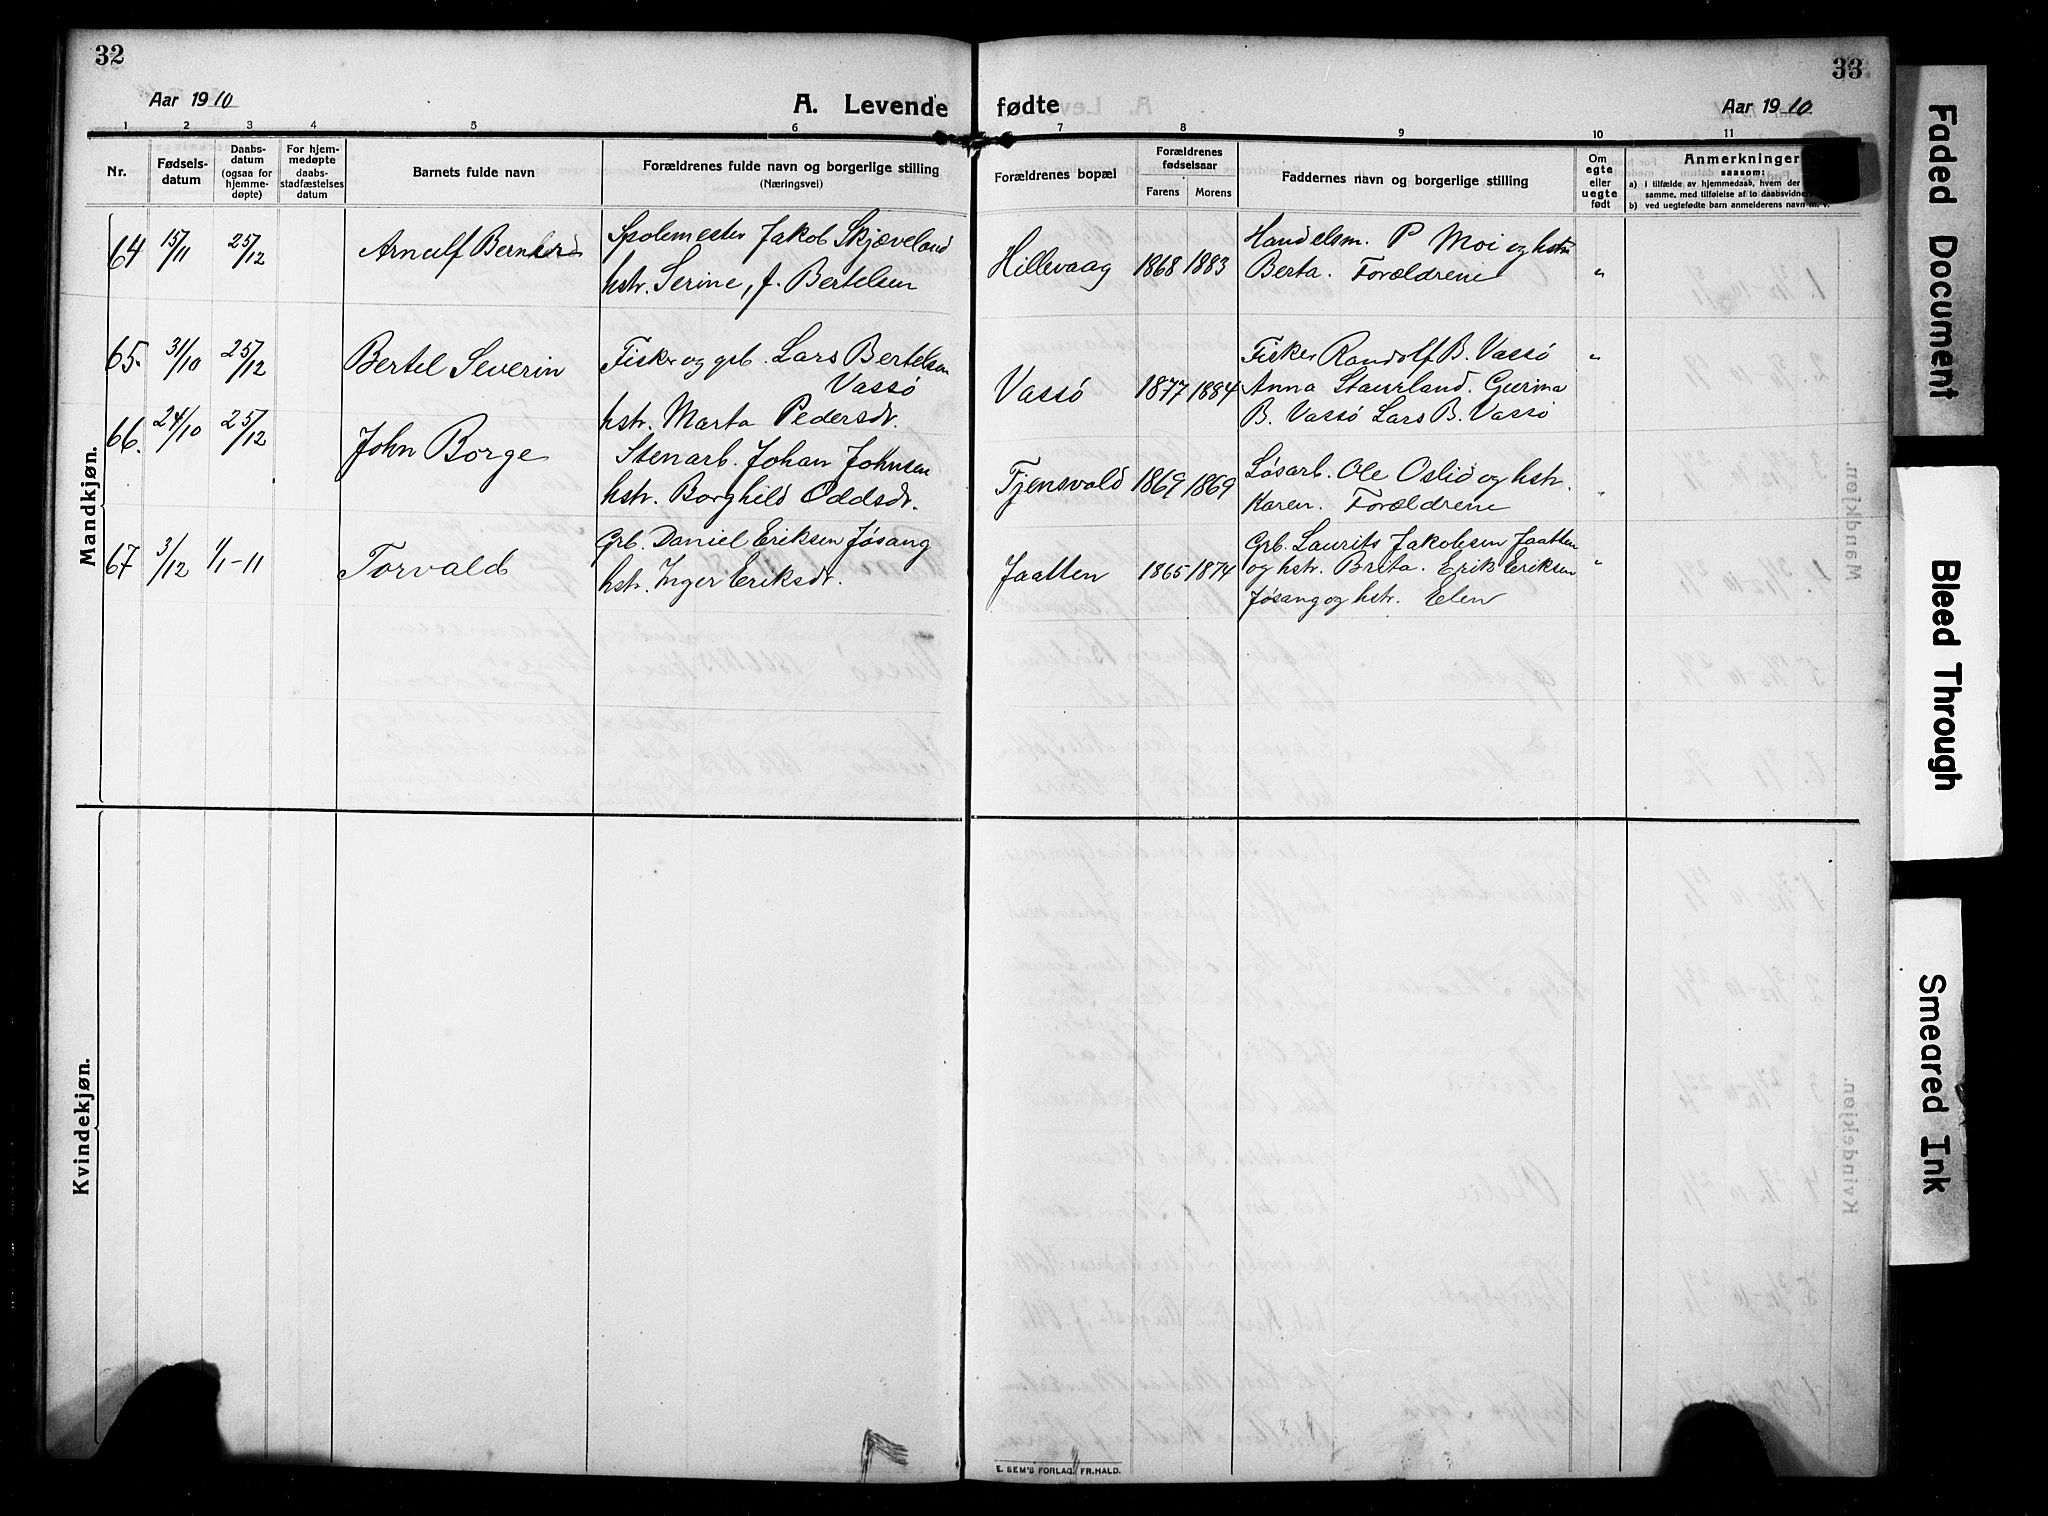 32
33
Aar 1910
A. Levende
fødte
Aar 1910
1 2 3 4 5 6 7 8 9 10 11
Nr.
Fødsels-
datum
Daabs-
datum
(ogsaa for
hjemme-
døpte)
For hjem-
medøpte
daabs-
stadfæstelses
datum
Barnets fulde navn
Forældrenes fulde navn og borgerlige stilling
(Næringsvei)
Forældrenes bopæl
Forældrenes
fødselsaar
Farens
Morens
Faddernes navn og borgerlige stilling
Om
egte
eller
uegte
født
Anmerkninger
saasom:
a) i tilfælde av hjemmedaab, hvem der
samme, med tilføielse af to daabsvidne
b) ved uegtefødte barn anmelderens navn m. v.
Mandkjøn.
64 15/11 25/12 Arnulf Bernhard
Spolemester Jakob Skjæveland
hstr. Serine, f. Bertelsen
Hillevaag 1868 1883
Handelsm. P Moi og hstr
Berta. Forældrene "
65. 31/10 25/12 Bertel Severin
Fisker og grb. Lars Bertelsen
Vassø
hstr. Marta Pedersdr.
Vassø 1877 1884
Fisker Randolf B. Vassø "
Anna Staurland. Gurina
B. Vassø Lars B. Vassø
66. 24/10 25/12 John Borge
Stenarb. Johan Johnsen
hstr. Borghild Oddsdr.
Tjensvold 1869 1869
Løsarb. Ole Oslid og hstr.
Karen. Forældrene "
67 3/12 1/1-11 Torvald
Grb. Daniel Eriksen Jøsang
hstr. Inger Eriksdr.
Jaatten 1865 1874
Grb. Laurits Jakobsen Jaatten
og hstr. Brita. Erik Eriksen "
Jøsang og hstr. Elen
Kvindekjøn.
E. SEM'S FORLAG, FR.HALD.
Faded Document
Bleed Through
Smeared Ink